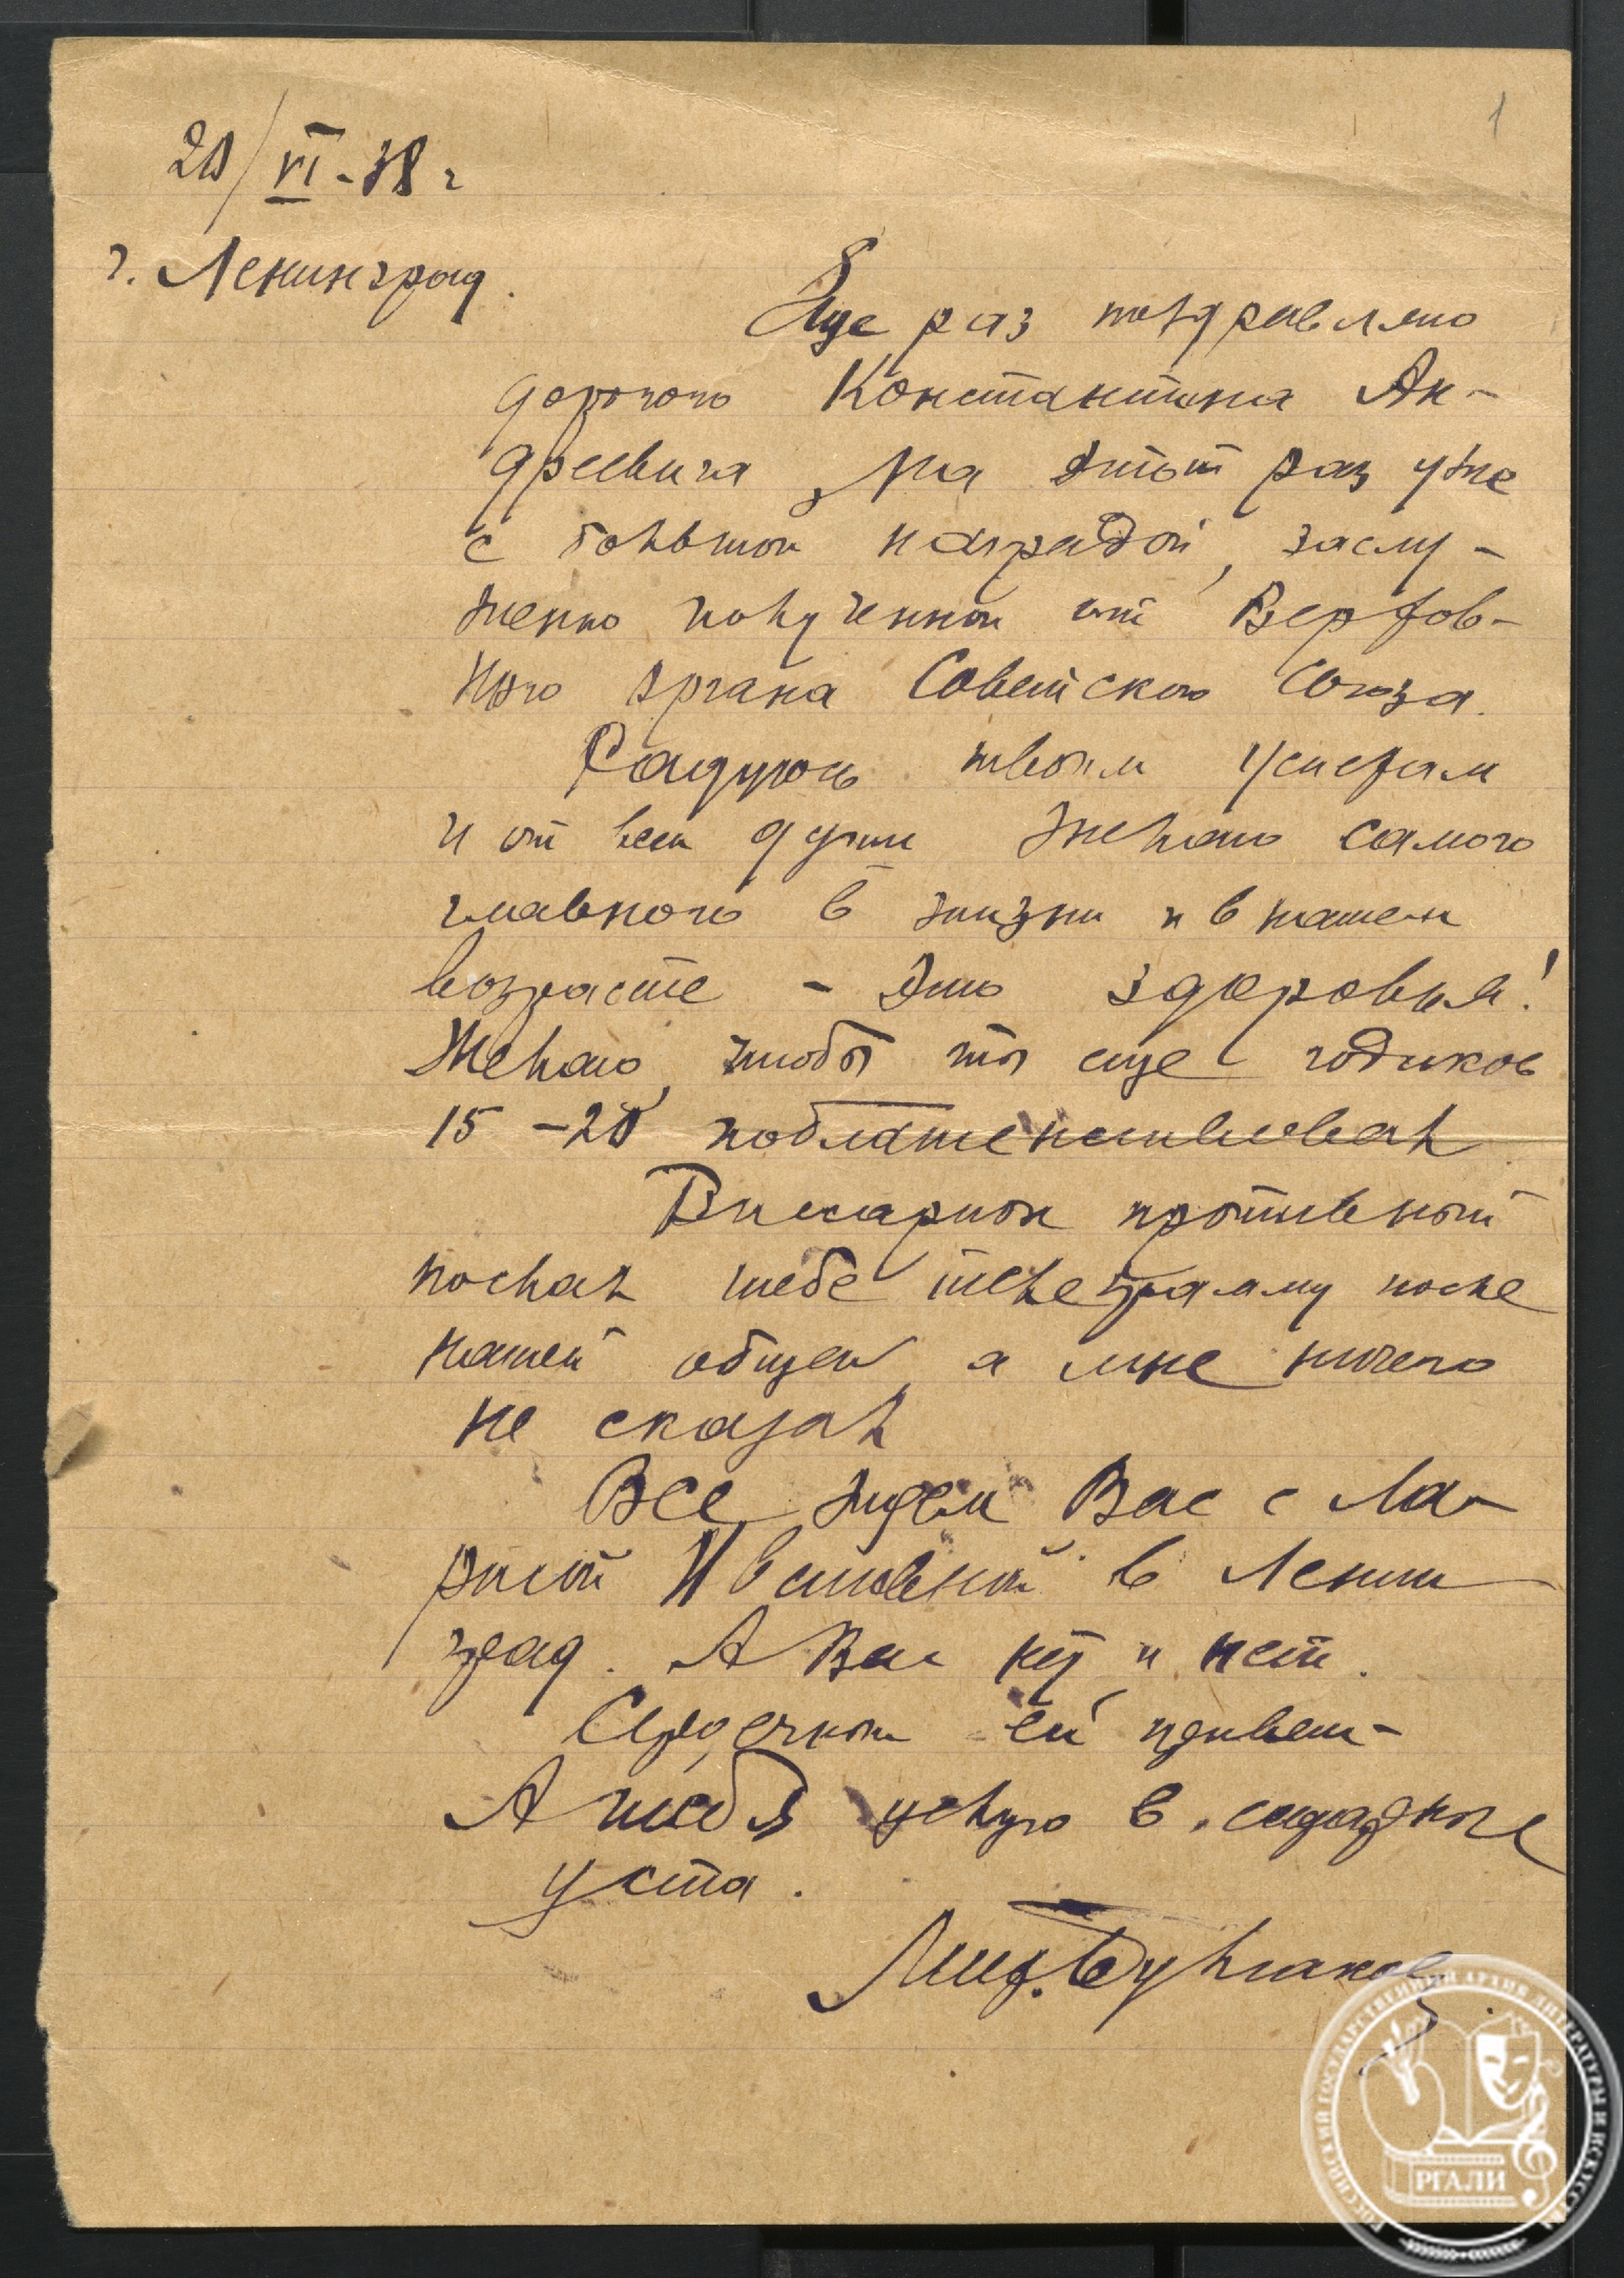 20/VI-38 г
1
г. Ленинград.
Еще раз поздравляю
дорогого Константина Ан-
дреевича, на этот раз уже
с большой наградой, заслу-
женно полученной от Верхов-
ного органа Советского Союза.
Радуюсь твоим успехам
и от всей души желаю самого
главного в жизни и в нашем
возрасте - это здоровья!
Желаю, чтобы ты еще годиков
15 - 20
Виссарион противный
послал тебе телеграмму после
нашей общей, а мне ничего
не сказал
Все ждем Вас с Ла-
рисой в Ленин
град. А Вас нет и нет.
Сердечный ей привет-
А тебя целую в сахарные
уста.
Мих. Булгаков
РОССИЙСКИЙ ГОСУДАРСТВЕННЫЙ АРХИВ ЛИТЕРАТУРЫ И ИСКУССТВА
РГАЛИ